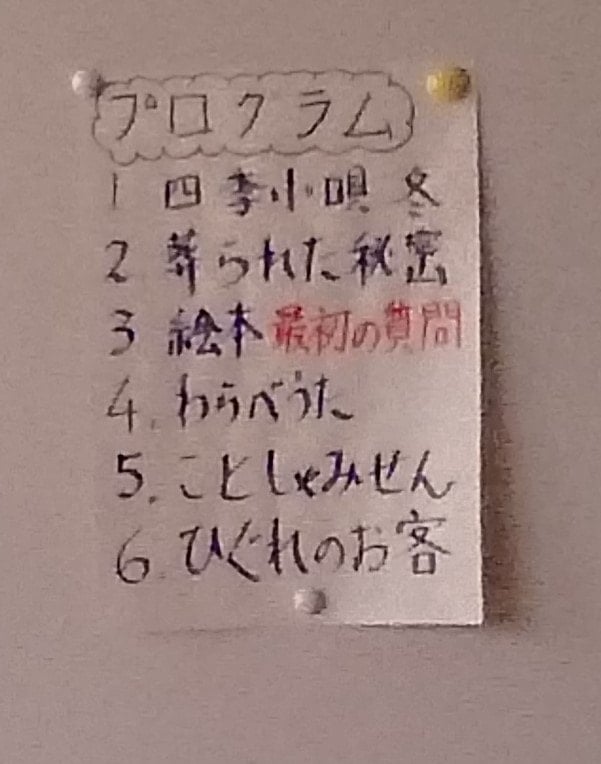 プログラム
1 四季小唄 冬
2 葬られた秘密
3 絵本 最初の質問
4. わらべうた
5. ことしゃみせん
6. ひぐれのお客